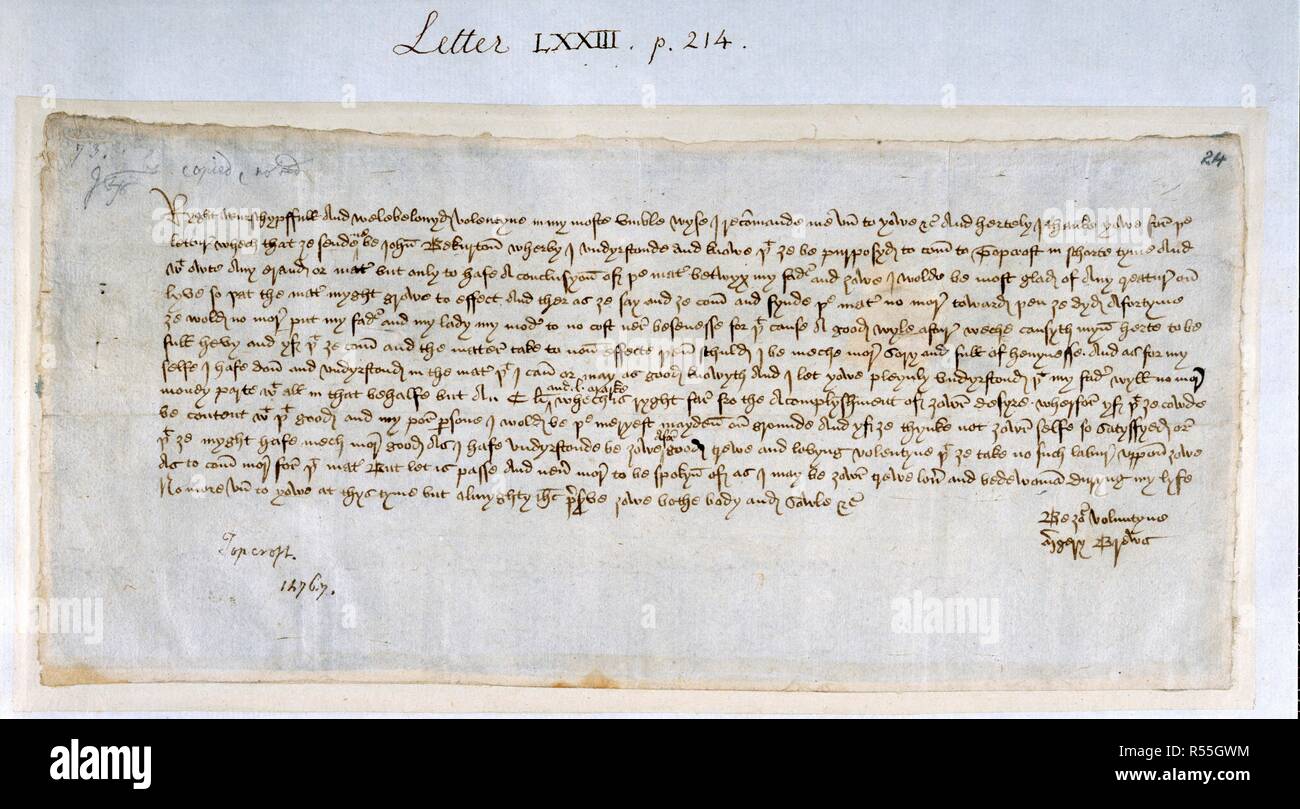 Letter LXXIII. p. 214.
73.
copied
24
Ryght wurschypffull and welebelouyd volentyne in my moste vmble wyse I recommande me vn to yowe &c And hertely I thanke yowe for þe
lettur whech that ȝe sende me be John Bekurton wherby I vndyrstonde and knowe þt ȝe be purposyd to com to Topcroft in schorte tyme And
wt owte any erand or mater but only to hafe a conclusyon of þe mater betwyx my fader and ȝowe I wolde be most glad of any creatur on
lyve so þat the mater myght growe to effect And ther as ȝe say and ȝe com and fynde þe mater no mor toward þen ȝe dyd afortyme
ȝe wold no mor put my fader and my lady my moder to no cost ner besenesse for þt cause a good wyle aftur weche causyth myn herte to be
full hevy and yf þt ȝe com and the matter take to non effecte þen schuld I be meche mor sory and full of heuynesse. And as for my
selfe I hafe don and vndyrstond in the mater þt I can or may as good knowyth And I let yowe pleynly vndyrstond þt my fader wyll no mor
money parte wt all in that behalfe but an C li and l marke whech is ryght far fro the acomplyshment of ȝowr desyre wherfor yf þt ȝe cowde
be content wt þt good and my por persone I wold be þe meryest mayden on grounde And yf ȝe thynke not ȝowr selfe so satysfyed or
þt ȝe myght hafe mech mor good as I hafe vndyrstonde be ȝowe afor good trewe and lovyng volentyne þt ȝe take no such labur vppon ȝowe
as to com mor for þt mater But let is passe And neuer mor to be spokyn of as I may be ȝowr trewe lover and bedewoman duryng my lyfe
No more vn to yowe at thys tyme but almyghty Jhc preserve ȝowe bothe body and sowle &c
Be ȝor voluntyne
Mgery Brews
Topcroft.
1476.7.
alamy
alamy stock photo
R55GWM
www.alamy.com